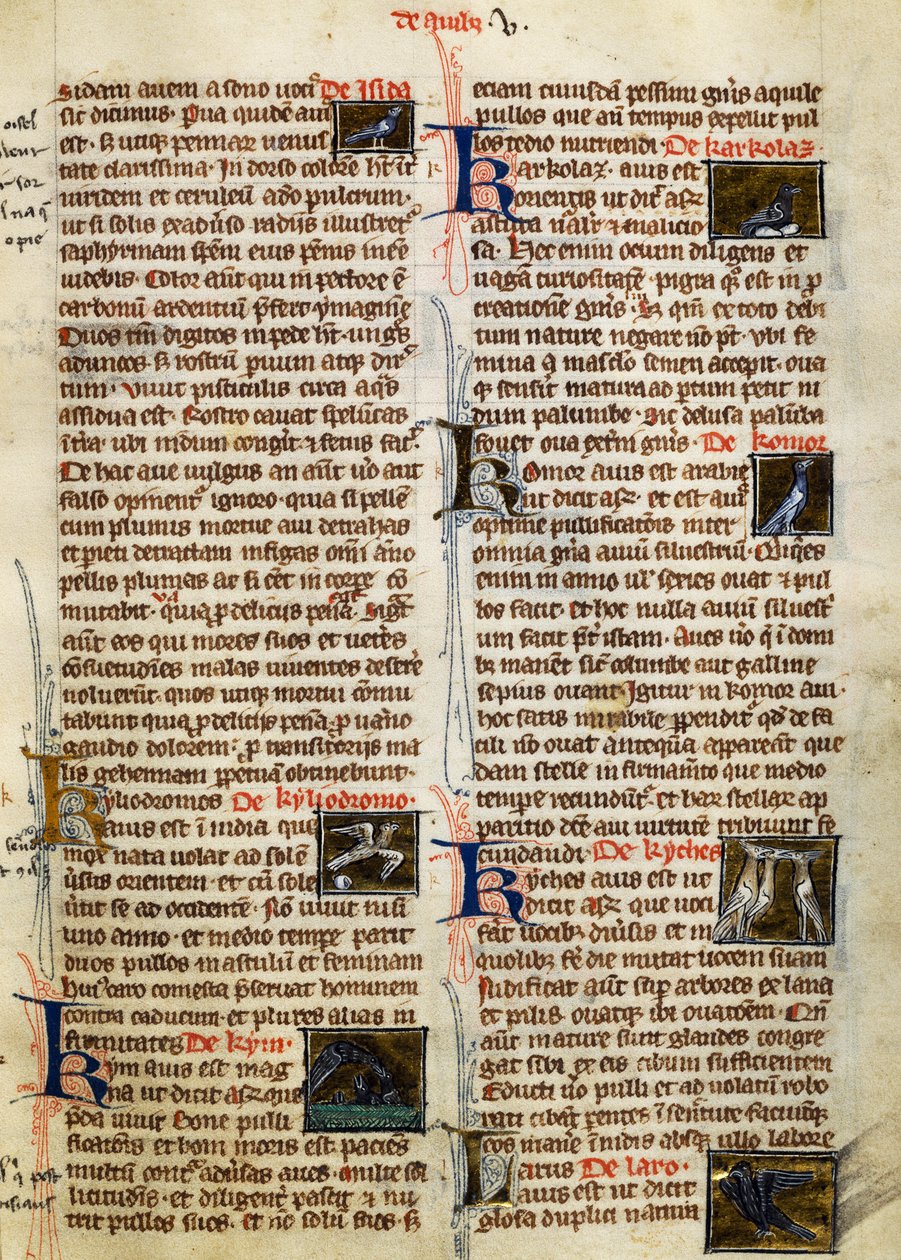 De auibꝫ .V.
sidam auem a sono uocis De Isida
sic dicimus. Pua quidē aui
est. sꝫ utiqꝫ pennar uenus
tate clarissima. In dorso colorē hꝫ ītͨ
uiridem et ceruleū adeo pulcrum.
ut si solis exaduso radijs illustretᷣ
saphirinam spēm eius pēnis inēē
uidebis. Color aūt qui in pectore ē
carbonū ardentiū p̄fert ymaginē
Duos tm̄ digitos in pede hꝫ. ungᷣs
aduncos. sꝫ rostrū puum atqꝫ dirᷣ
tum. Viuit pisciculis circa aqᷣs
assidua est. Rostro cauat spelūcas
ītra. ubi nidum congᷣit ⁊ fetus facᷣ.
De hac aue uulgus an aūt uō aut
falso opinentᷣ ignoro. quia si pellē
cum plumis mortue aui detrahas
et pieti detractam infigas omī āno
pellis plumas ac si eēt in corꝑe
mutabit. quiqꝫ ꝓ deliciis penā. Sigᷣt
aūt eos qui mores suos et uetēs
ɔ̄suetudīes malas uiuentes deserē
noluerūt. quos utiqꝫ mortui cōmu
tabunt quiqꝫ ꝓ delicijs penā. ꝓ uano
gaudio dolorem. ꝓ transitorijs ma
lis gehennam ꝑpetuā obtinebunt.
Kyliodromos De kyliodromo.
auis est ī india que
mox nata uolat ad solē
ūsus orientem. et cū sole
ūtit se ad occidentē. Nō uiuit nisi
uno anno. et medio tempe parit
duos pullos masculū et feminam
huiᷣ caro comesta p̄seruat hominem
contra caducum. et plures alias in
firmitates De kym.
Kym auis est mag
na ut dicit aꝶ que
p̄da uiuit bone pulli
ficatōis et boni moris est. paciēs
multū contᷓ adūsas aues. multe sol
licitudis. et diligentᷣ pascit ⁊ nu
trit pullos suos. et nō solū suos. sꝫ
eciam cuiusdā pessimi gn̄is aquile
pullos que an̄ tempus expellit pul
los tedio nutriendi. De karkolaz.
Karkolaz. auis est
orientis ut dicᷣ aꝶ
astuta nālr ⁊ malicio
sa. Hec enim ocium diligens et
uagā curiositatē. pigra qᷓ est in p
creatione gn̄is. Sꝫ qm̄ ex toto debi
tum nature negare nō pt̄. ubi fe
mina q̄ masc̄lo semen accepit. oua
qꝫ senserᷣt matura ad ptum petit ni
dum palumbe. Sic delusa palūba
fouet oua ext̄ni gn̄is. De komor
Komor auis est arabie
ut dicit aꝶ. et est auis
optime pullificatōis inter
omnia gn̄a auiū siluestriū. Oīes
enim in anno ul̄ sexies ouat ⁊ pul
los facit. et hoc nulla auiū siluestᷣ
um facit pᷣt istam. Aues uō q̄ ī domi
bꝫ manēt sicᷣ columbe aut galline
sepius ouant. Igitur in komor aui.
hoc satis mirabile ꝑpenditᷣ qd̄ de fa
cili nō ouat anteqᷓ̄ appareāt que
dam stelle in firmamēto que medio
tempe recundūtᷣ. et har̄ stellar̄ ap
paritio dcē aui uirtutē tribuunt fe
cundandi. De kyches
Kyches auis est ut
dicit aꝶ que uoci
fat uocibꝫ diūsis et in
quolibꝫ fē die mutat uocem suam
Nidificat aūt sup arbores ex lana
et pilis ouatqꝫ ibi ouatōem. Qn̄
aūt mature sunt glandes congre
gat sibi ex eis cibum sufficientem
Educti uō pulli et ad uolatū robo
rati cibāt ꝑentes ī senectute faciuntqꝫ
eos manē ī nidis absqꝫ ullo labore
Larus De laro.
auis est ut dicit
glosa duplici natura
oisel
sor
opie